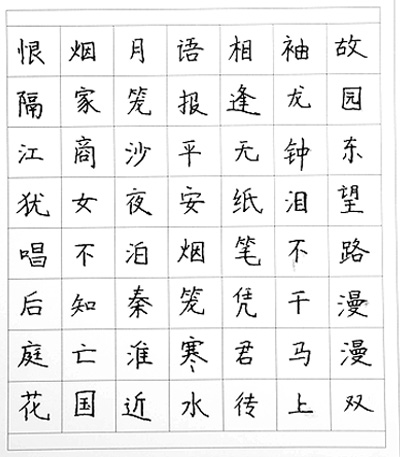 故园东望路漫漫双
袖龙钟泪不干马上
相逢无纸笔凭君传
语报平安烟笼寒水
月笼沙夜泊秦淮近
烟家商女不知亡国
恨隔江犹唱后庭花